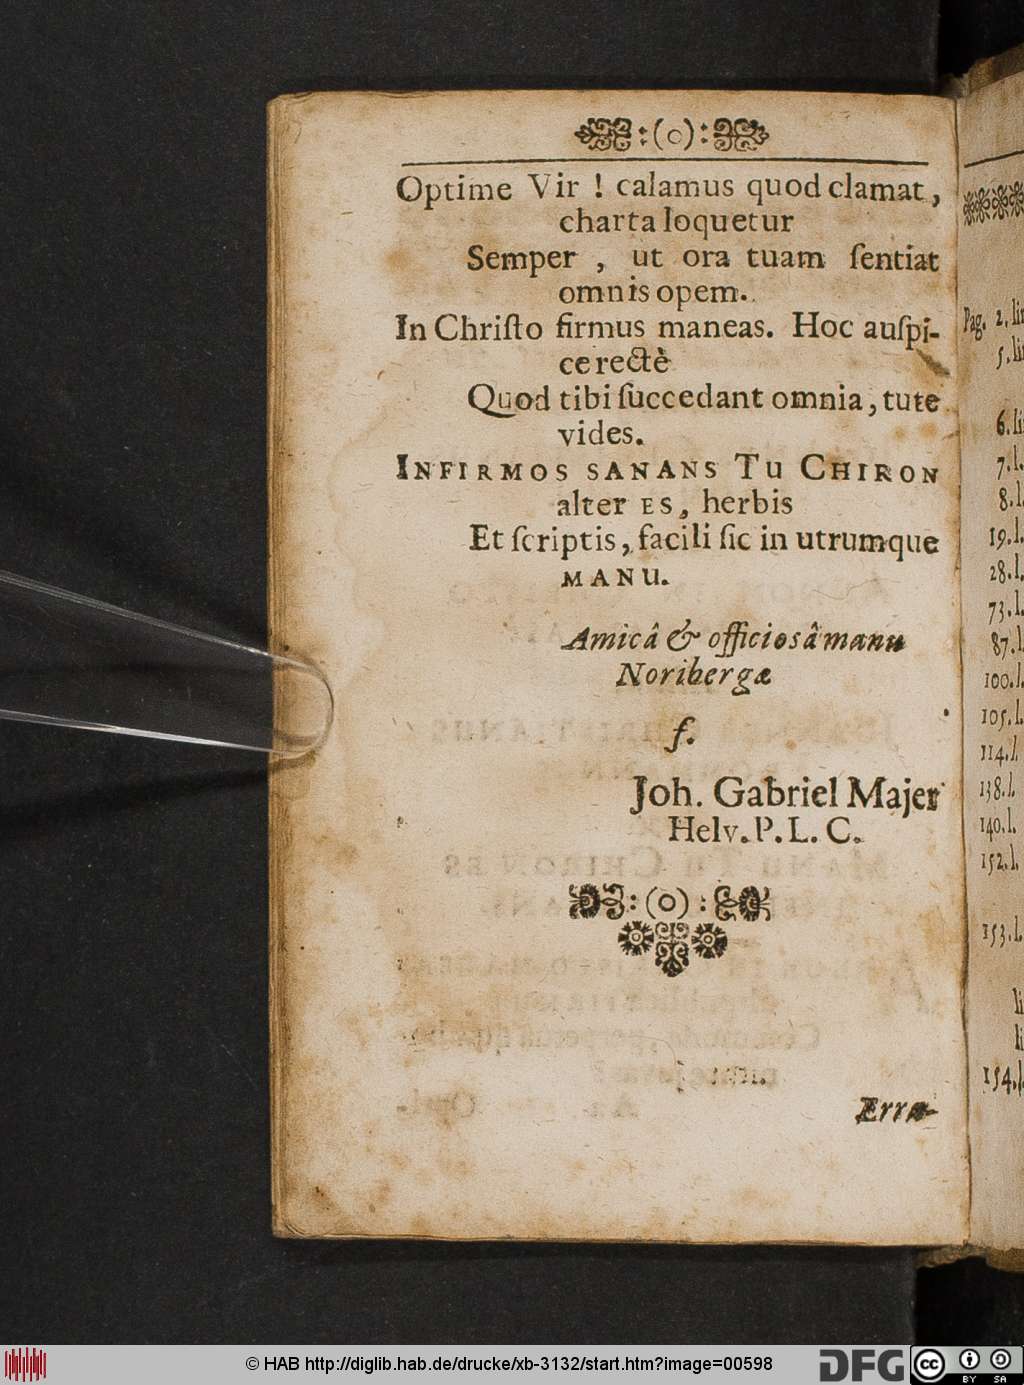 :(o):
Optime Vir ! calamus quod clamat,
charta loquetur
Semper , ut ora tuam ſentiat
omnis opem.
In Chriſto firmus maneas. Hoc auſpi-
ce rectè
Quod tibi ſuccedant omnia, tute
vides.
INFIRMOS SANANS TU CHIRON
alter ES, herbis
Et ſcriptis, facili ſic in utrumque
MANU.
Amicâ & officiosâ manu
Noribergæ
f.
Joh. Gabriel Majer
Helv. P. L. C.
:(o):
Erra-
Pag. 2. lin
5. lin
6. li
7. l.
8. l.
19. l.
28. l.
73. l.
87. l.
100. l.
105. l.
114. l.
138. l.
140. l.
152. l.
153. l.
li
li
154. l.
© HAB http://diglib.hab.de/drucke/xb-3132/start.htm?image=00598
DFG
cc BY SA